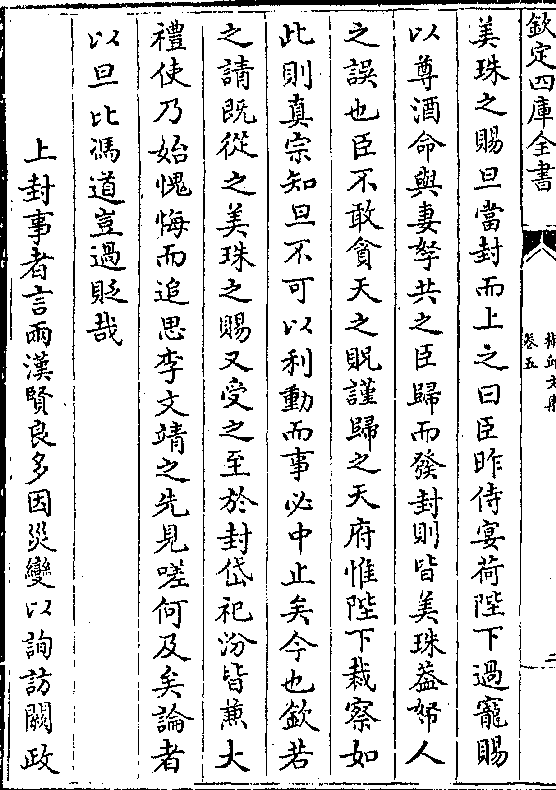 欽定四庫全書
卷五
美珠之賜旦當封而上之曰臣昨侍宴荷陛下過寵賜
以尊酒命與妻孥共之臣歸而發封則皆美珠葢婦人
之誤也臣不敢貪天之貺謹歸之天府惟陛下裁察如
此則真宗知旦不可以利動而事必中止矣今也欽若
之請既從之美珠之賜又受之至於封岱祀汾皆兼大
禮使乃始愧悔而追思李文靖之先見嗟何及矣論者
以旦比馮道豈過貶哉
上封事者言兩漢賢良多因災變以詢訪闕政